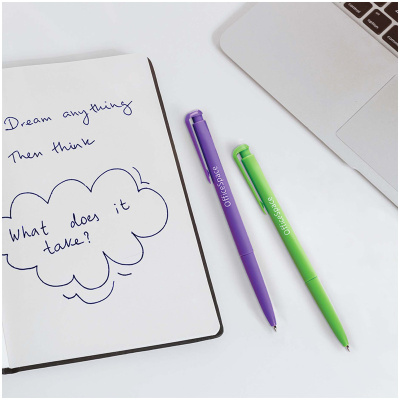 Dream anything
Then think
What does it
take?
OfficeSpace
OfficeSpace